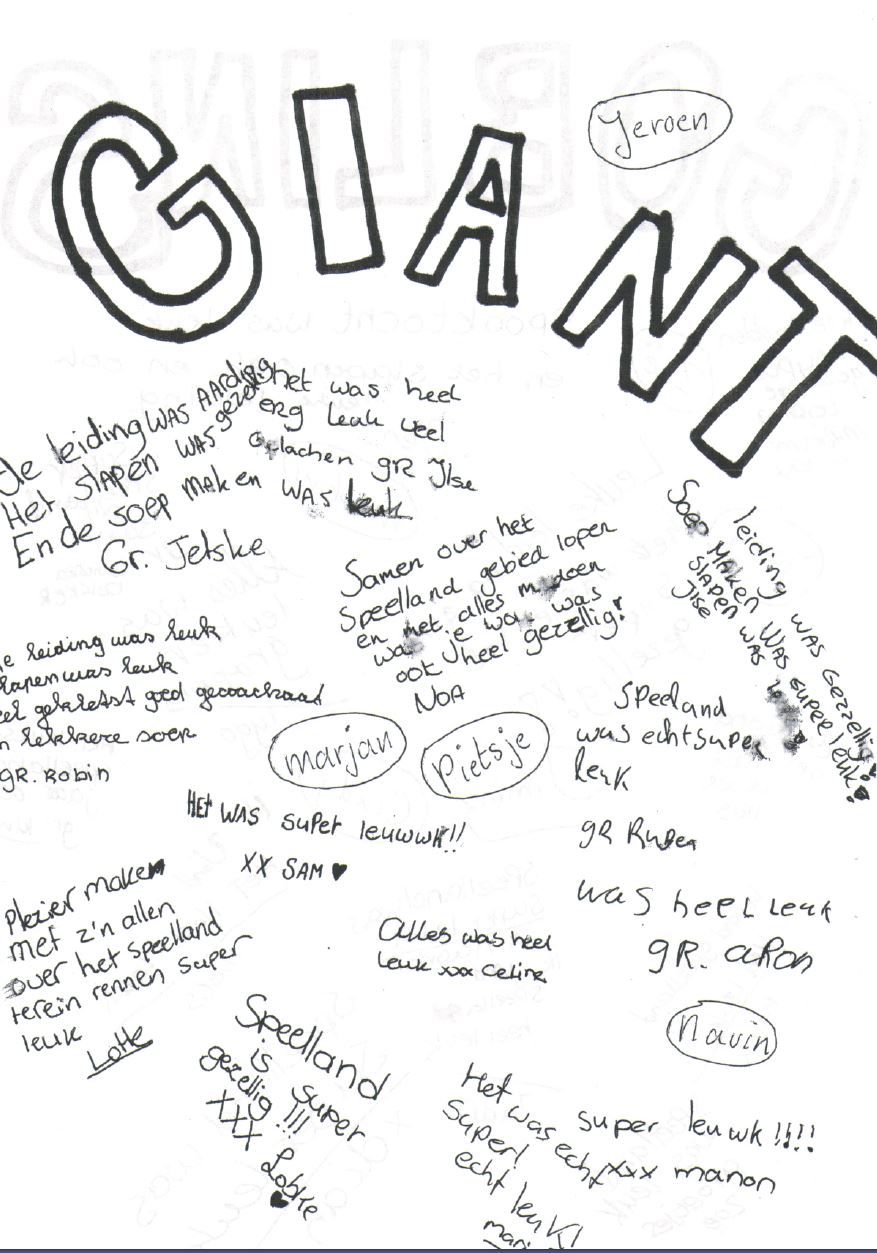 GIANT
Jeroen
De leiding WAS AARdig
Het slapen was gezellig
En de soep maken was leuk
Gr. Jetske
het was heel
erg leuk veel
gelachen gR Ilse
Samen over het
Speelland gebied lopen
en met alles m doen
wat je wou was
ook heel gezellig!
NOA
leiding was gezzellig!
Soep Maken Was super leuk!
Slapen was
Ilse
e leiding was leuk
lapen was leuk
el gekletst goed gecoachaad
n lekkere soep
gR. Robin
marjan
Pietsje
Speeland
was echt super
leuk
gR Ruben
HET WAS super leuwwk!!
XX SAM ♥
Plezier maken
met z'n allen
over het speelland
terein rennen super
leuk
Lotte
Alles was heel
leuk xxx Celine
was heel leuk
gR. aRon
Navin
Speelland
is super
gezellig!!!
XXX Lobke
♥
Het was echt
super!
echt leuk!
super leuwk!!!!
xxx manon